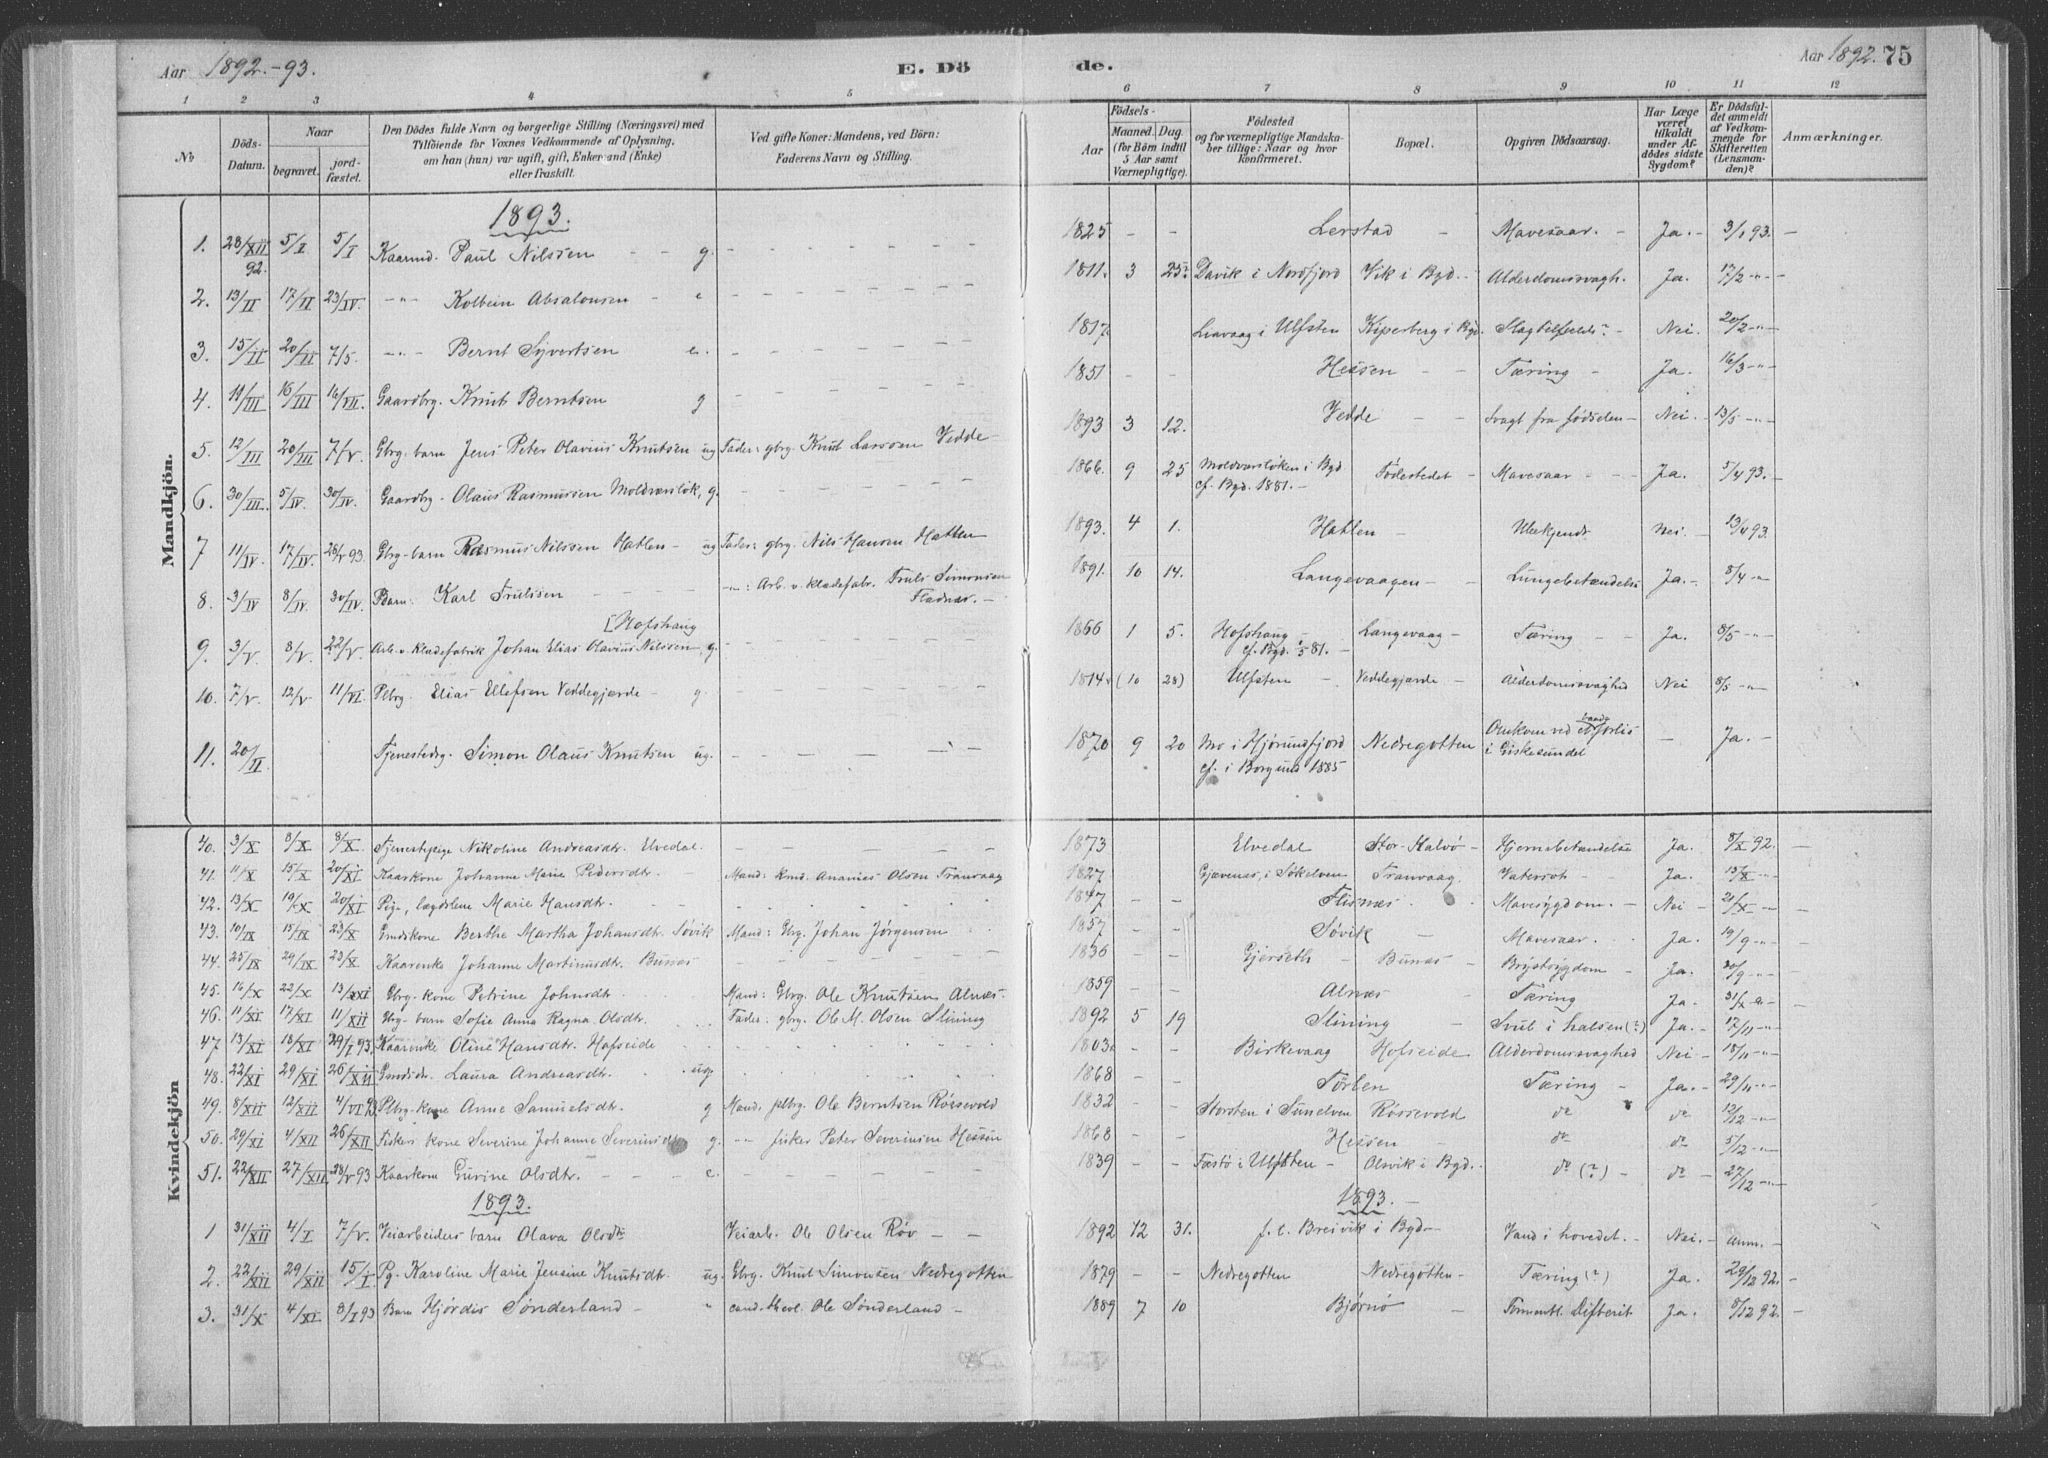 Aar 1892.-93.
E. Dö
de.
Aar 1892. 75
1 2 3 4 5 6 7 8 9 10 11 12
No
Döds-Datum.
Naar
begravet.
jord-fæstet.
Den Dödes fulde Navn og borgerlige Stilling (Næringsvei) med
Tilföiende for Voxnes Vedkommende af Oplysning,
om han (hun) var ugift, gift, Enkemand (Enke)
eller fraskilt.
Ved gifte Koner: Mandens, ved Börn:
Faderens Navn og Stilling.
Aar
Födsels-
Maaned. Dag.
(for Børn indtil
5 Aar samt
Værnepligtige).
Födested
og for værnepligtige Mandska-
ber tillige: Naar og hvor
konfirmeret.
Bopæl.
Opgiven Dödsaarsag.
Har Læge
været
tilkaldt
under Af-
dödes sidste
Sygdom?
Er Dödsfal-
det anmeldt
af Vedkom-
mende for
Skifteretten
(Lensman-
den)?
Anmærkninger.
Mandkjön.
1893.
1. 28/XII 92. 5/I 5/I Kaarmd. Paul Nilssen - - g. 1825 - - Lerstad - Mavesaar. - Ja. - 3/1 93. -
2. 13/II 17/II 23/IV. -"- Kolbein Absalonsen - e 1811. 3 25. Davik i Nordfjord Vik i Bgd. Alderdomssvagh. Ja. 17/2 -"-
3. 15/II 20/II 7/5. -"- Bernt Syvertsen e. 1817. Leavaag i Ulfsten Kiperberg i Bgd. Slagtilfælde? Nei. 20/2 -"-
4. 11/III 16/III 16/VII. Gaardbrg. Knut Berntsen g 1851 - - Hessen - - Tæring - Ja. 16/3 -"-
5. 12/III 20/III 7/V. Gbrg. barn Jens Peter Olavius Knutsen ug Fader: gbrg. Knut Larssen Vedde - 1893 3 12. Vedde - - Svagt fra fødselen - Nei - 13/5 -"-
6. 30/III. 5/IV. 30/IV. Gaardbg. Olaus Rasmussen Moldværslök, g. 1866. 9 25 Moldværslöken i Bgd. cf. Bgd. 1881. - Fødestedet - Mavesaar - - Ja. 5/4 93. -
7 11/IV. 17/IV. 28/V 93. Gbrg-barn Rasmus Nilssen Hatlen - ug Fader: gbrg. Nils Hansen Hatlen 1893. 4 1. Hatlen - Ubekjendt Nei. - 13/4 93.
8. 3/IV 8/IV. 30/IV. Barn: Karl Trulssen - - - -"-: Arb. v. klædefabr. Truls Simonsen Fladnes. - 1891. 10 14. Langevaagen - - Lungebetændelse Ja. - 8/4 -"-
[Hofshaug
9. 3/V. 8/V. 22/V. Arb. v. Klædefabrik Johan Elias Olavius Nilssen, g. 1866 1 5. Hofshaug - cf. Bgd. 81. - Langevaag - Tæring - - Ja. 8/5 -"-
10. 7/V. 12/V 11/VI. Plbrg. Elias Ellefsen Veddegjærde - g. 1814. (10 28) Ulfsten - Veddegjærde - Alderdomssvaghed Nei 8/5 -"-
11. 20/II Tjenestedrg. Simon Olaus Knutsen ug. 1870 9 20 Mo i Hjørundfjord cf. i Borgund 1885 Nedregotten Omkom ved baadforlis i Giskesundet - Ja. -
Kvindekjön
40. 3/X 8/X 8/X. Tjenestepige Nikoline Andreasdtr. Elvedal. 1873 Elvedal Stor-Kalvö - Hjernebetændelse Ja. 8/X 92. -
41. 11/X 15/X 20/XI Kaarkone Johanne Marie Pedersdtr. Mand: kmd. Ananias Olsen Tranvaag 1827 Gjævenæs, i Søkelven Tranvaag. Vatersot - Ja. 13/X -"-
42. 13/X 19/X 20/XI Pige, lægdslem Marie Hansdtr. 1847 - - Flisnæs. Mavesygdom. - Nei - 21/X -"-
43. 10/IX 15/IX 23/X Gmdskone Berthe Martha Johansdtr. Søvik Mand: Gbrg. Johan Jørgensen 1857 - - Søvik - Mavesaar. Ja. 19/9 -"-
44. 25/IX 29/IX 23/X Kaarenke Johanne Martinusdtr. Bunæs 1836 - - Gjerseth - Bunæs - Brystsygdom - Ja. 30/9 -"-
45. 16/X 22/X 13/XI Gbrg-kone Petrine Johnsdtr. Mand: Gbrg. Ole Knutsen Alnæs. 1859 - - Alnæs Tæring Ja. 31/X -"-
46. 11/XI 17/XI 11/XII Gbrg-barn Sofie Anna Ragna Olsdtr. Fader: gbrg. Ole M. Olsen Slining 1892 5 19 Slining - Svul i halsen (?) Ja. - 17/11 -"-
47 13/XI 18/XI 29/I 93. Kaarenke Oline Hansdtr. Hofseide 1803. - - Birkevaag Hofseide Alderdomssvaghed Nei - 18/11 -"-
48. 22/XI 29/XI 26/XII Gmdsdtr. Laura Andreasdtr. ug. 1868 - - Tørlen Tæring - Ja. - 29/11 -"-
49. 8/XII 12/XII 4/VI 93 Plbrg-kone Anne Samuelsdtr. g Mand: plbrg. Ole Berntsen Røssevold 1832 - - Stordten i Sunelven Røssevold do do 12/12 -"-
50. 29/XI 4/XII 26/XII Fiskers kone Severine Johanne Severinsdtr g. -"- fisker Peter Severinsen Hessen 1868 - - Hessen - do do 5/12 -"-
51. 22/XII 27/XII 28/V 93 Kaarkone Gurine Olsdtr. - - - e. 1839 - - Fæstö i Ulfsten - Olsvik i Bgd. - do (?) - do - 27/12 -"-
1893. 1893. -
1 31/XII 4/I 7/V. Veiarbeiders barn Olava Olsdtr Veiarb. Ole Olsen Röv - - 1892 12 31. f. t. Breivik i Bgd - Vand i hovedet. - Nei. - anm. -
2. 22/XII 29/XII 15/I Pg. Karoline Marie Jensine Knutsdtr. ug. Gbrg. Knut Simonsen Nedregotten 1879 - - Nedregotten Nedregotten - Tæring (?) Ja. 29/12 92. -
3. 31/X 4/XI 8/I 93 Barn Hjördis Sönderland - " cand. theol. Ole Sönderland - 1889 7 10 Bjørnö - Formentl. Difterit Ja. 8/12 92. -